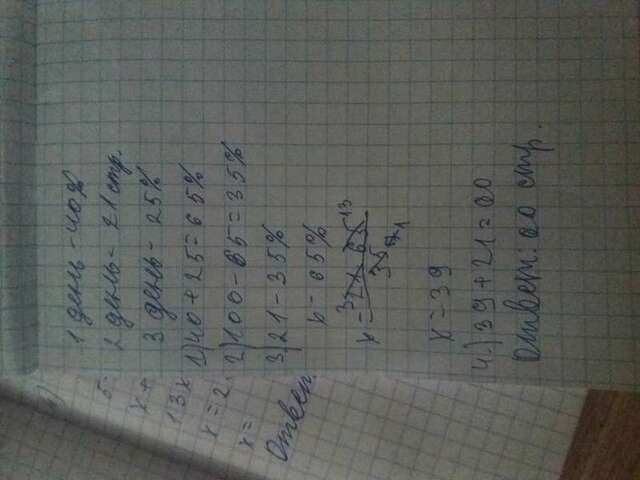 1 день - 40%
2 день - 21 стр.
3 день - 25%
1) 40 + 25 = 65%
2) 100 - 65 = 35%
3) 21 - 35%
x - 65%
x = 21 · 65
35
x = 39
4.) 39 + 21 = 60
Ответ: 60 стр.
x +
13x
x = 2
x =
Ответ